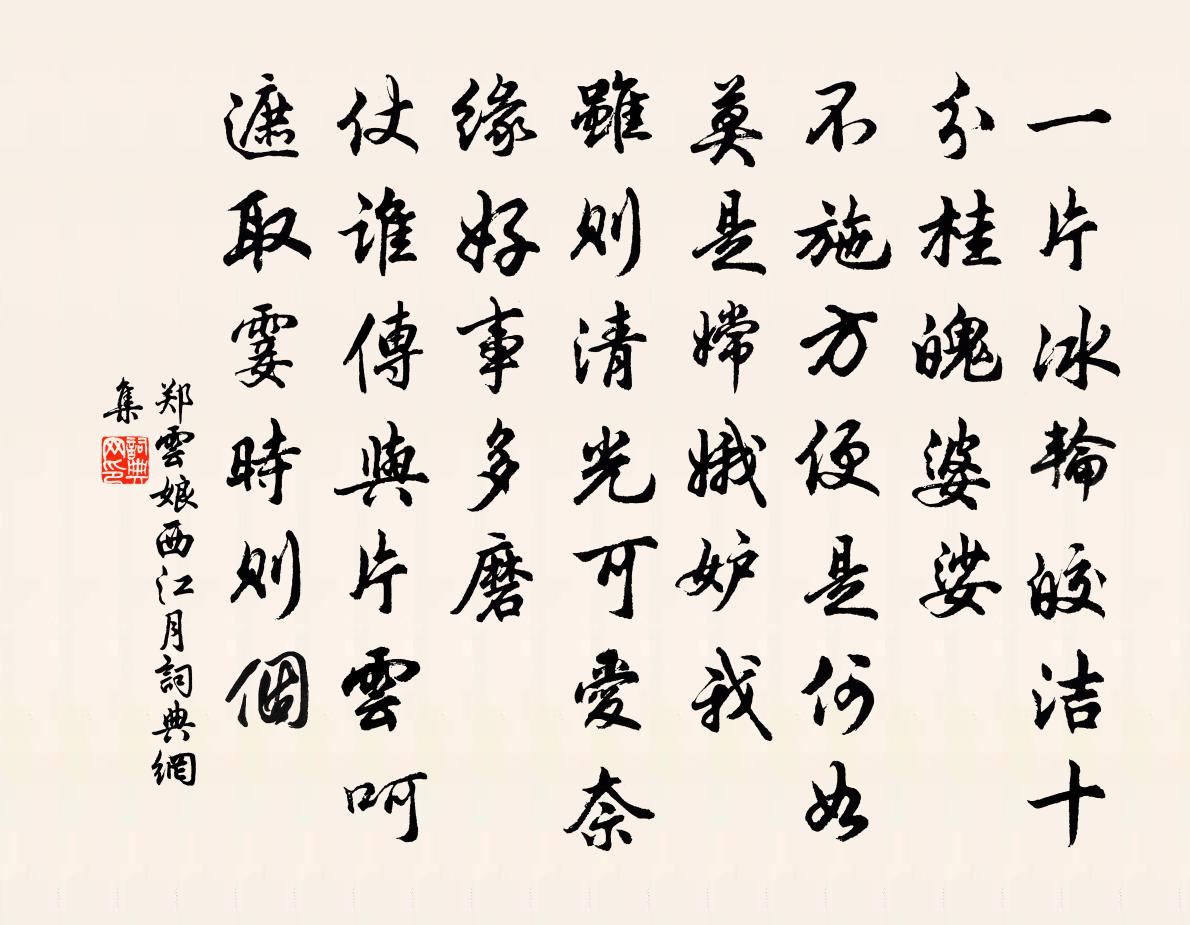 一片冰輪皎洁十
分桂魄婆娑
不施方便是何如
莫是嫦娥妒我
雖则清光可愛奈
緣好事多磨
仗谁傳與片雲呵
遮取霎時则個
郑雲娘西江月詞典網
集
詞典
网印